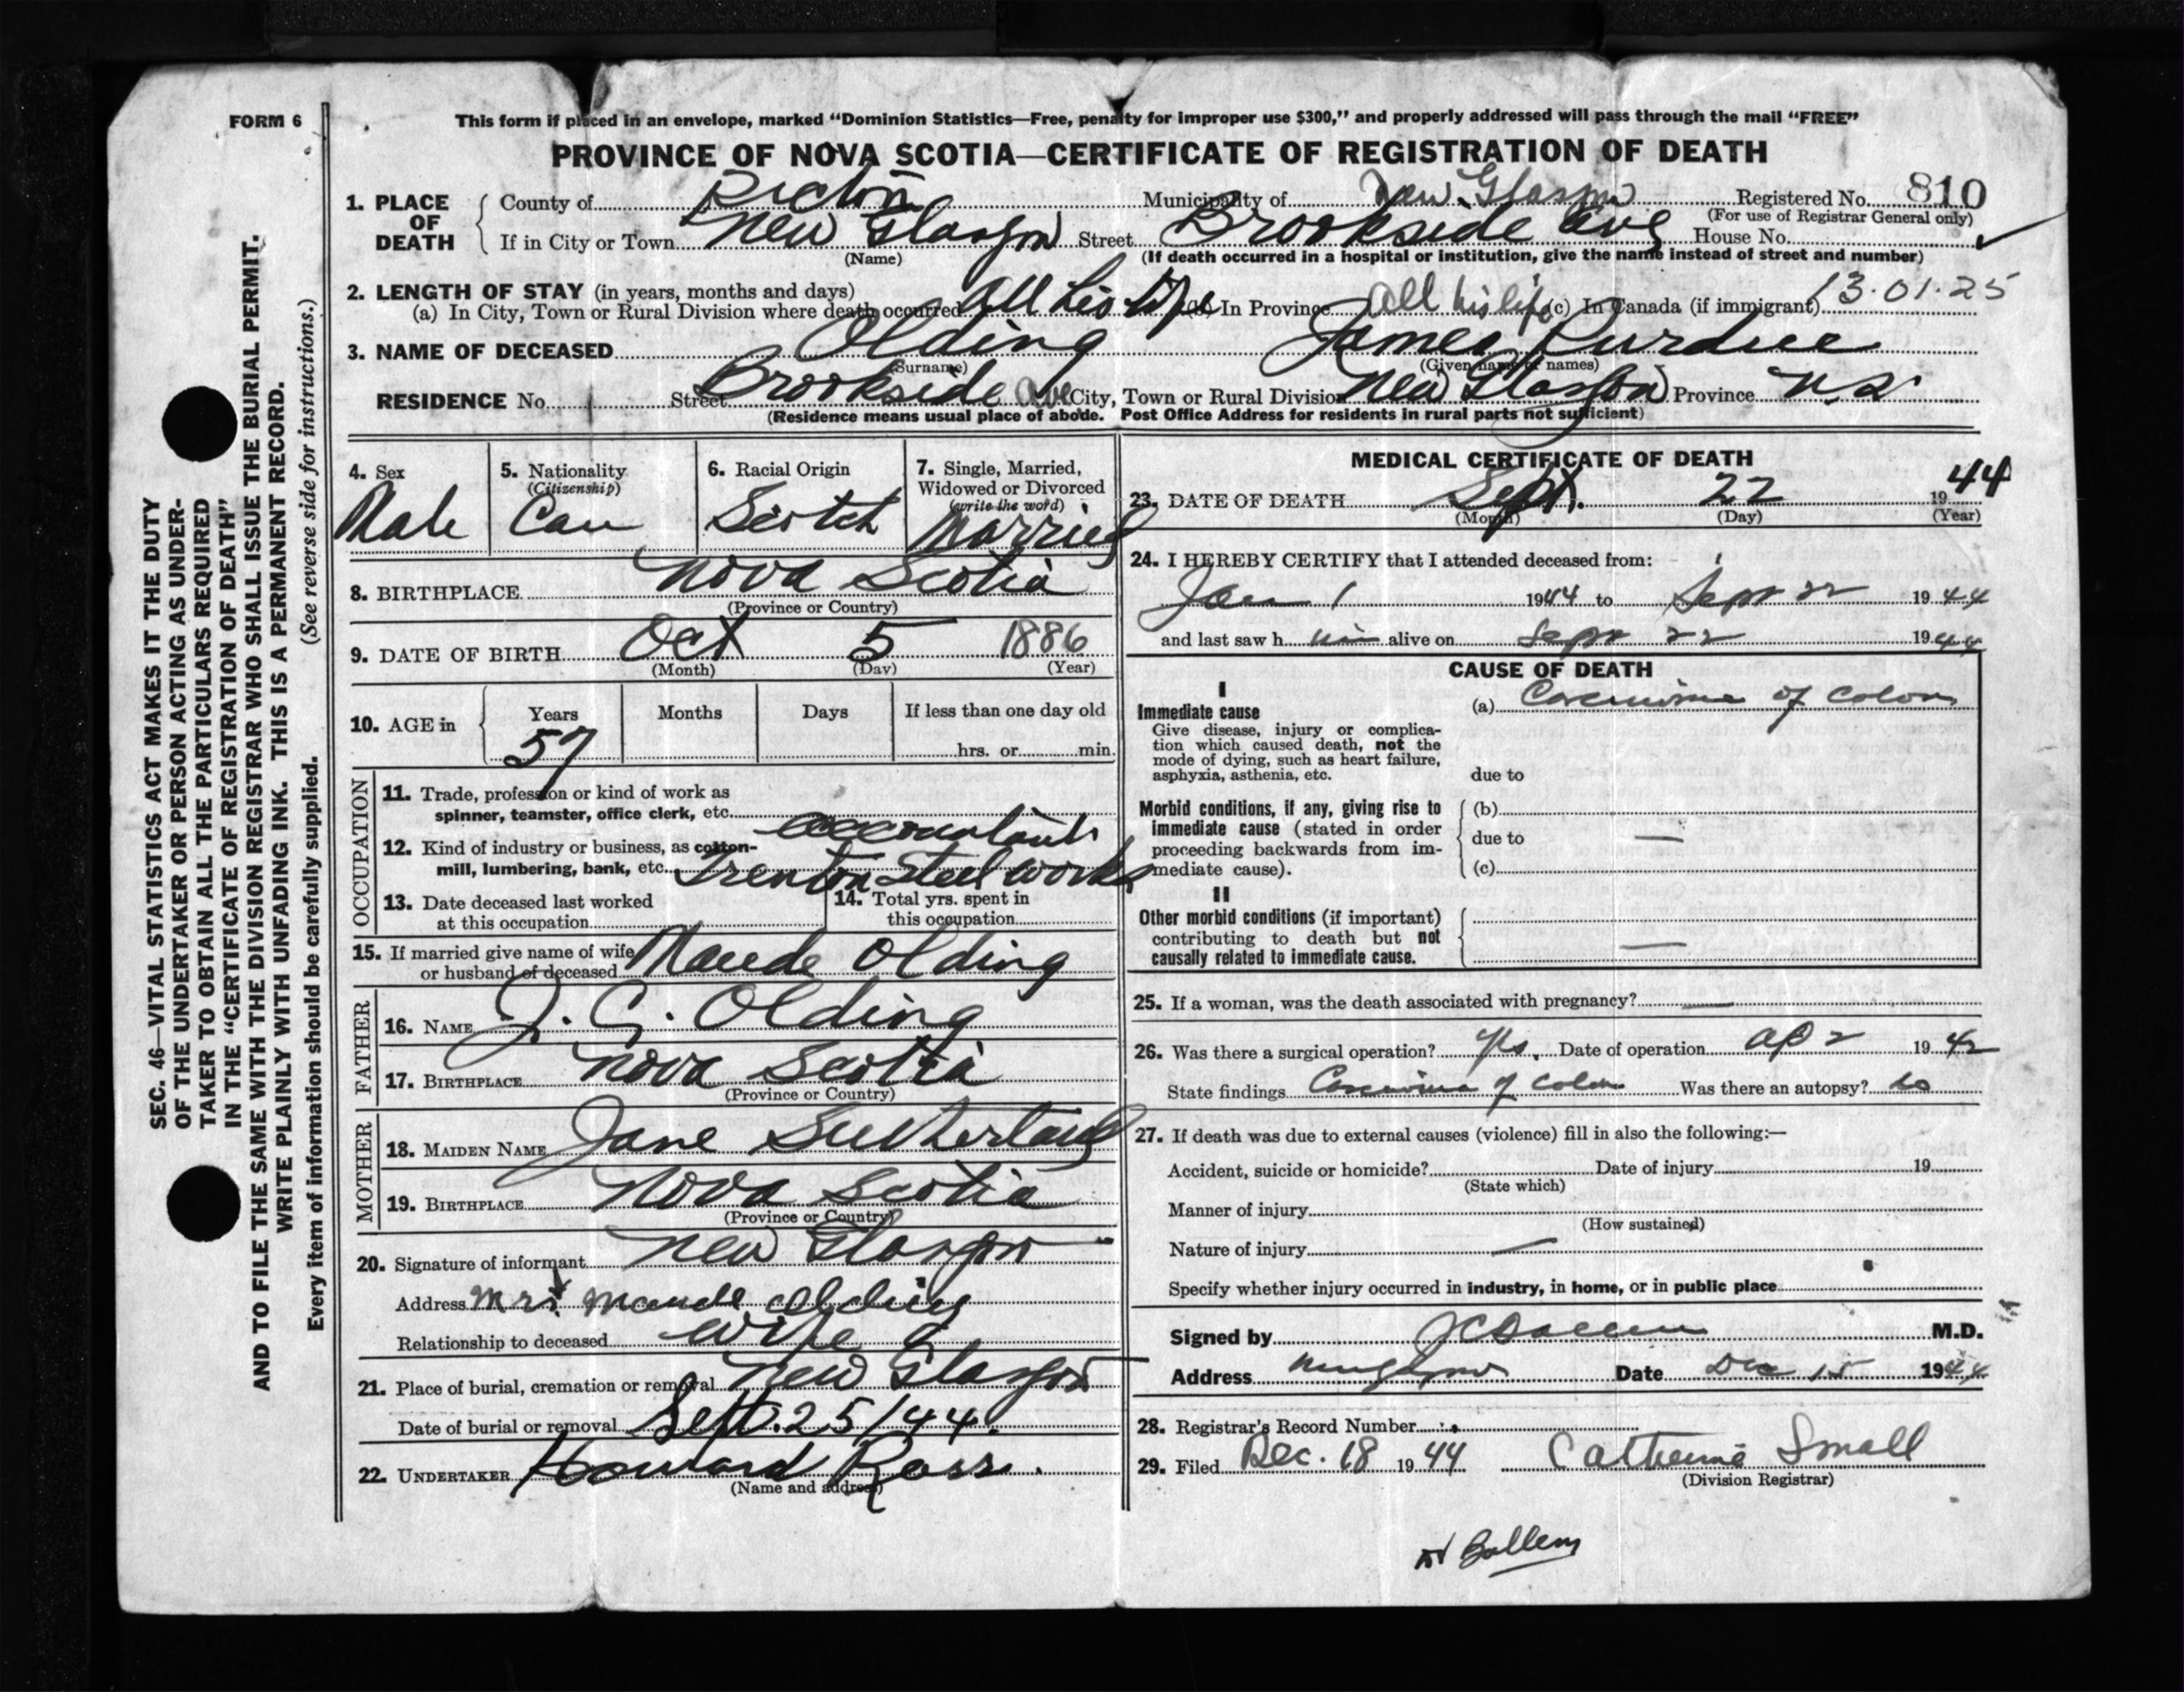 FORM 6
SEC. 46—VITAL STATISTICS ACT MAKES IT THE DUTY
OF THE UNDERTAKER OR PERSON ACTING AS UNDER-
TAKER TO OBTAIN ALL THE PARTICULARS REQUIRED
IN THE "CERTIFICATE OF REGISTRATION OF DEATH"
AND TO FILE THE SAME WITH THE DIVISION REGISTRAR WHO SHALL ISSUE THE BURIAL PERMIT.
WRITE PLAINLY WITH UNFADING INK. THIS IS A PERMANENT RECORD.
Every item of information should be carefully supplied. (See reverse side for instructions.)
This form if placed in an envelope, marked "Dominion Statistics—Free, penalty for improper use $300," and properly addressed will pass through the mail "FREE"
PROVINCE OF NOVA SCOTIA—CERTIFICATE OF REGISTRATION OF DEATH
1. PLACE OF DEATH
County of Pictou Municipality of New Glasgow Registered No. 810
(For use of Registrar General only)
If in City or Town New Glasgow Street Brookside Ave House No. ✓
(Name) (If death occurred in a hospital or institution, give the name instead of street and number)
2. LENGTH OF STAY (in years, months and days)
(a) In City, Town or Rural Division where death occurred All his life (b) In Province All his life (c) In Canada (if immigrant) 13·01·25
3. NAME OF DECEASED Olding James Purdue
(Surname) (Given name or names)
RESIDENCE No. Street Brookside Ave City, Town or Rural Division New Glasgow Province N.S.
(Residence means usual place of abode. Post Office Address for residents in rural parts not sufficient)
4. Sex Male
5. Nationality (Citizenship) Can
6. Racial Origin Scotch
7. Single, Married, Widowed or Divorced (write the word) Married
8. BIRTHPLACE Nova Scotia
(Province or Country)
9. DATE OF BIRTH Oct 5 1886
(Month) (Day) (Year)
10. AGE in Years 57 Months Days If less than one day old
hrs. or min.
OCCUPATION
11. Trade, profession or kind of work as
spinner, teamster, office clerk, etc. accountant
12. Kind of industry or business, as cotton-
mill, lumbering, bank, etc. Trenton Steel Works
13. Date deceased last worked
at this occupation
14. Total yrs. spent in
this occupation
15. If married give name of wife
or husband of deceased Maude Olding
FATHER
16. NAME J. G. Olding
17. BIRTHPLACE Nova Scotia
(Province or Country)
MOTHER
18. MAIDEN NAME Jane Sutherland
19. BIRTHPLACE Nova Scotia
(Province or Country)
20. Signature of informant New Glasgow
Address Mrs. Maude Olding
Relationship to deceased wife
21. Place of burial, cremation or removal New Glasgow
Date of burial or removal Sept. 25/44.
22. UNDERTAKER Howard Ross.
(Name and address)
MEDICAL CERTIFICATE OF DEATH
23. DATE OF DEATH Sept. 22 1944
(Month) (Day) (Year)
24. I HEREBY CERTIFY that I attended deceased from:
Jan 1 1944 to Sept 22 1944
and last saw him alive on Sept 22 1944
CAUSE OF DEATH
I
Immediate cause (a) Carcinoma of Colon
Give disease, injury or complica-
tion which caused death, not the
mode of dying, such as heart failure,
asphyxia, asthenia, etc. due to
Morbid conditions, if any, giving rise to (b)
immediate cause (stated in order
proceeding backwards from im- due to —
mediate cause). (c)
II
Other morbid conditions (if important)
contributing to death but not —
causally related to immediate cause.
25. If a woman, was the death associated with pregnancy? —
26. Was there a surgical operation? Yes. Date of operation Ap 2 1942
State findings Carcinoma of Colon Was there an autopsy? No
27. If death was due to external causes (violence) fill in also the following:—
Accident, suicide or homicide? Date of injury 19
(State which)
Manner of injury
(How sustained)
Nature of injury —
Specify whether injury occurred in industry, in home, or in public place
Signed by J C Ballem M.D.
Address New Glasgow Date Dec 15 1944
28. Registrar's Record Number
29. Filed Dec. 18 1944 Catherine Small
(Division Registrar)
Ballem